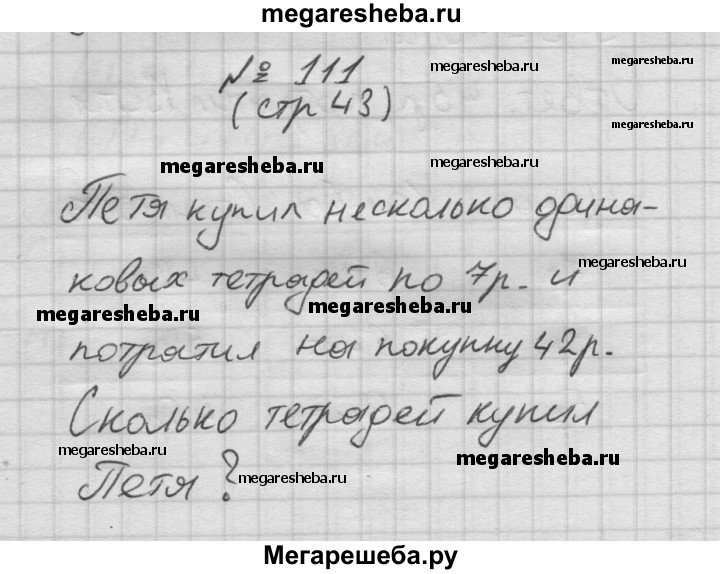 megaresheba.ru
№ 111
megaresheba.ru
(стр 43)
megaresheba.ru
megaresheba.ru
megaresheba.ru
Петя купил несколько одина-
megaresheba.ru
ковых тетрадей по 7р. и
megaresheba.ru
megaresheba.ru
потратил на покупку 42р.
Сколько тетрадей купил
megaresheba.ru
megaresheba.ru
Петя ?
megaresheba.ru
Мегарешеба.ру